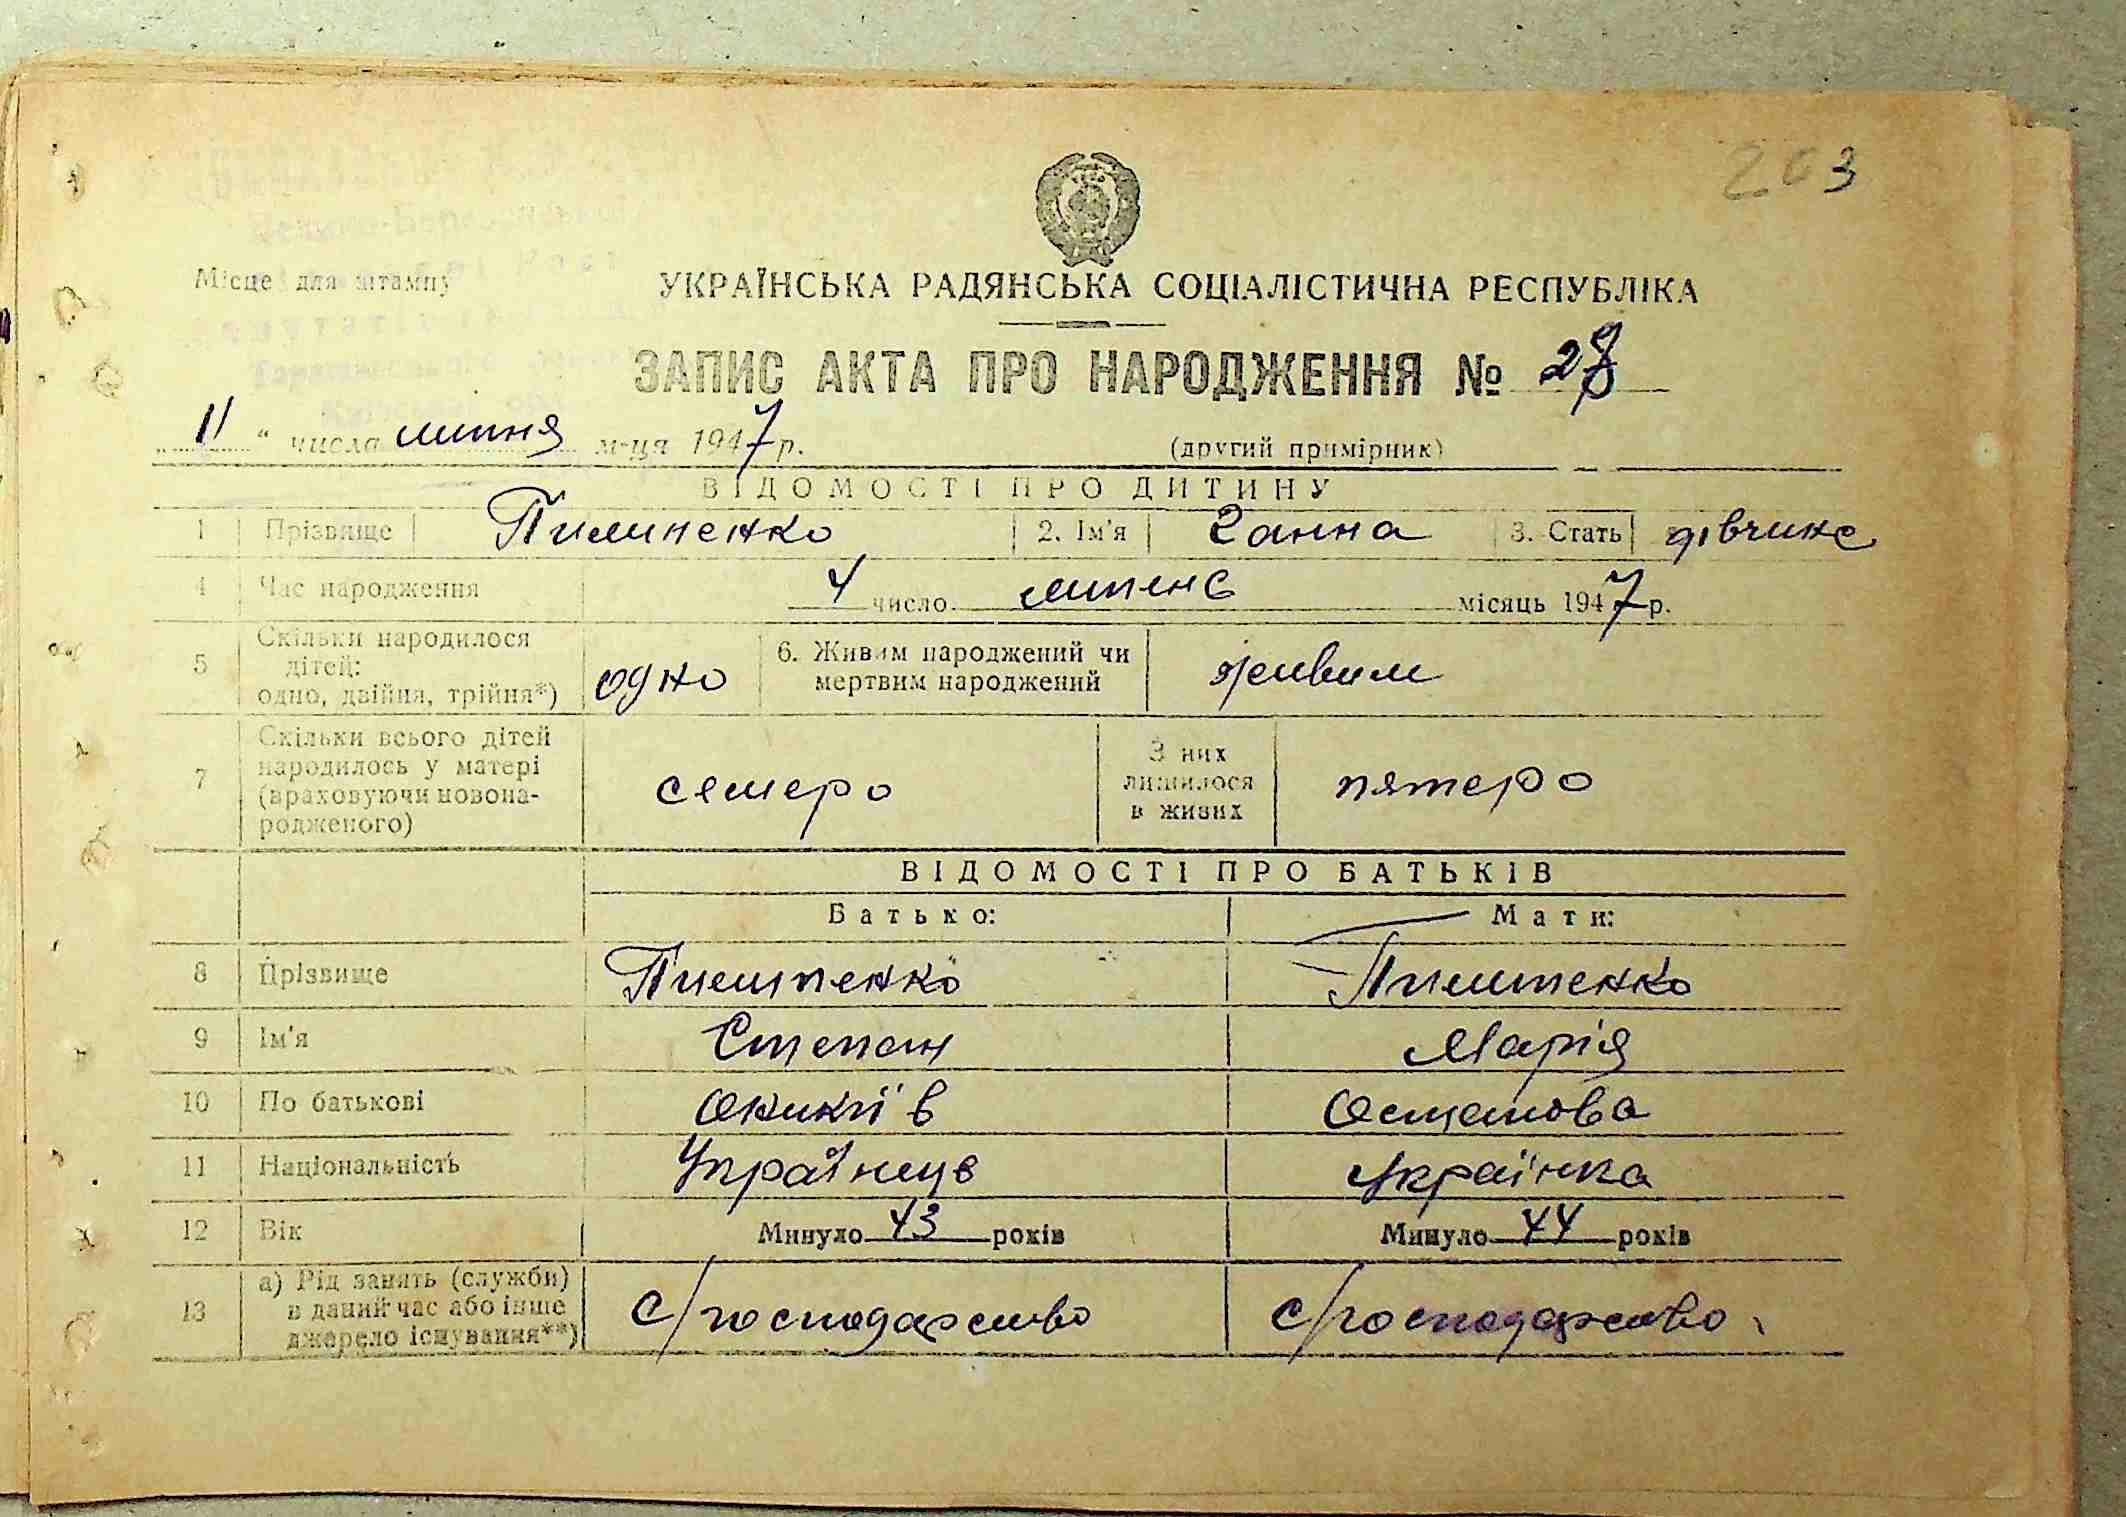 203
Місце для штампу
УКРАЇНСЬКА РАДЯНСЬКА СОЦІАЛІСТИЧНА РЕСПУБЛІКА
ЗАПИС АКТА ПРО НАРОДЖЕННЯ № 28
11 " числа липня м-ця 1947 р.
(другий примірник)
ВІДОМОСТІ ПРО ДИТИНУ
1 Прізвище Пилипенко 2. Ім'я Ганна 3. Стать дівчина
4 Час народження 4 число липень місяць 1947 р.
5 Скільки народилося дітей: одно, двійня, трійня*) одно 6. Живим народжений чи мертвим народжений живим
7 Скільки всього дітей народилось у матері (враховуючи новонародженого) семеро З них лишилося в живих пятеро
ВІДОМОСТІ ПРО БАТЬКІВ
Батько: Мати:
8 Прізвище Пилипенко Пилипенко
9 Ім'я Степан Марія
10 По батькові Оникіїв Остапова
11 Національність Українець Українка
12 Вік Минуло 43 років Минуло 44 років
13 а) Рід занять (служби) в даний час або інше джерело існування**) с/господарство с/господарство